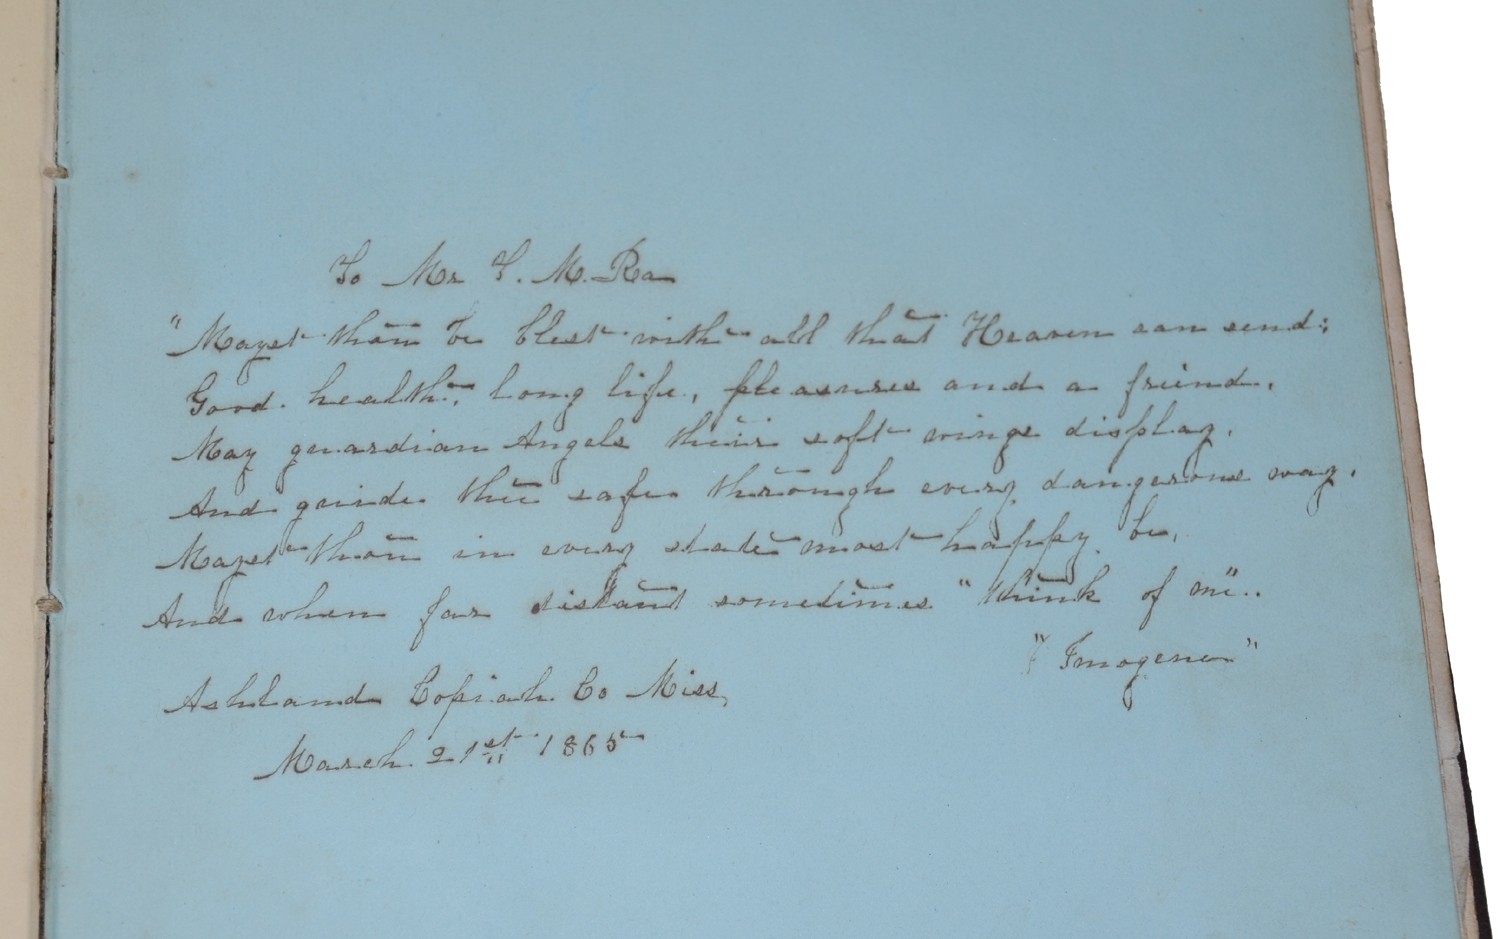 To Mr T. M. Rea
"Mayst thou be blest with all that Heaven can send;
Good health, long life, pleasures and a freind.
May guardian Angels their soft wings display,
And guide thee safe through every dangerous way.
Mayst thou in every state most happy be,
And when far distant sometimes "think of me"..
"Imogene"
Ashland Copiah Co Miss,
March 21st 1865